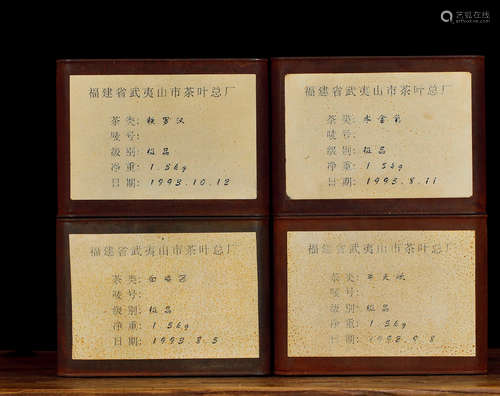 艺狐在线
福建省武夷山市茶叶总厂
茶类: 铁罗汉
唛号:
级别: 极品
净重: 1.5kg
日期: 1993.10.12
福建省武夷山市茶叶总厂
茶类: 水金龟
唛号:
级别: 极品
净重: 1.5kg
日期: 1993.8.11
福建省武夷山市茶叶总厂
茶类:
唛号:
级别: 极品
净重: 1.5kg
日期: 1993.8.5
福建省武夷山市茶叶总厂
茶类: 半天妖
唛号:
级别: 极品
净重: 1.5kg
日期: 1993.9.8